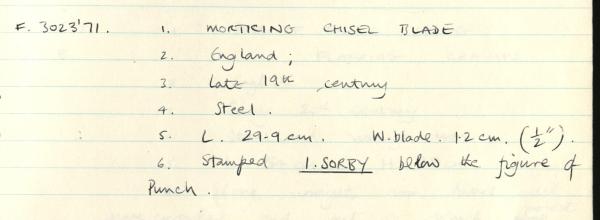 F. 3023'71. 1. MORTICING CHISEL BLADE
2. England;
3. Late 19th century
4. Steel.
5. L. 29.9 cm. W. blade. 1.2 cm. (1/2").
6. Stamped I. SORBY below the figure of
Punch.